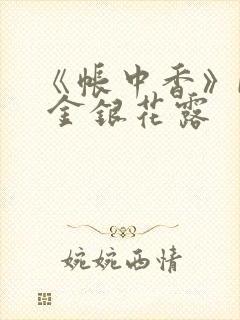 《帐中香》
金银花露
婉婉西情